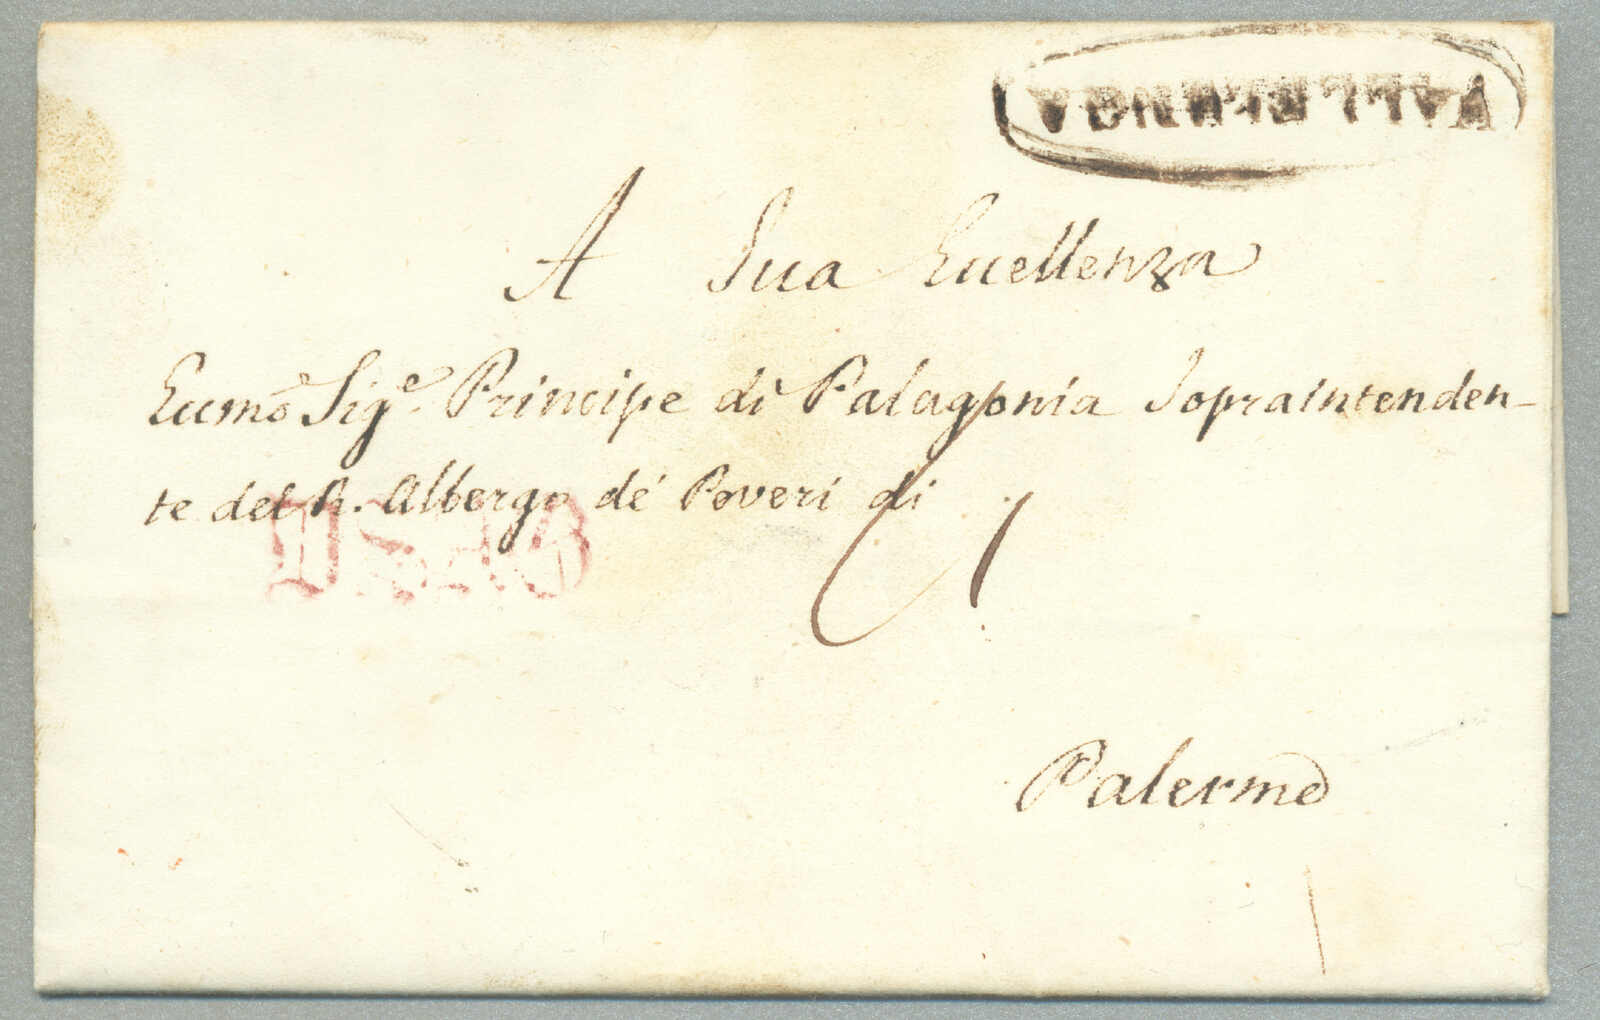 VALLELUNGA
A Sua Eccellenza
Eccmo Sige. Principe di Palagonia Sopraintenden-
te del R. Albergo de' Poveri di
Palermo